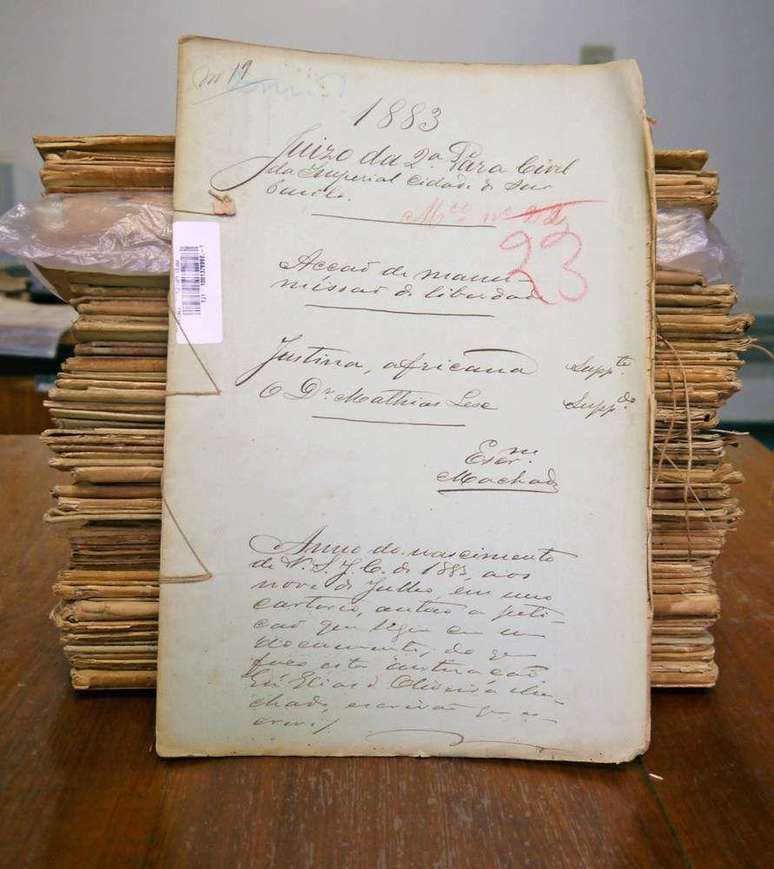 Nº 19
1883
Juizo da 2ª Vara Civel
da Imperial Cidade de Sm
Paulo.
Mço nº
23
Acção de manu-
missão de liberdade
Justina, africana Suppte
O Dr Mathias Suppdo
Escrm
Machado
Anno do nascimento
de N. S. J. C. de 1883, aos
nove de Julho, em meu
cartorio, autuo a peti-
ção que segue em um
documento, do que
faço esta autuação
Eu Elias d'Oliveira Ma-
chado, escrivão que es-
crevi